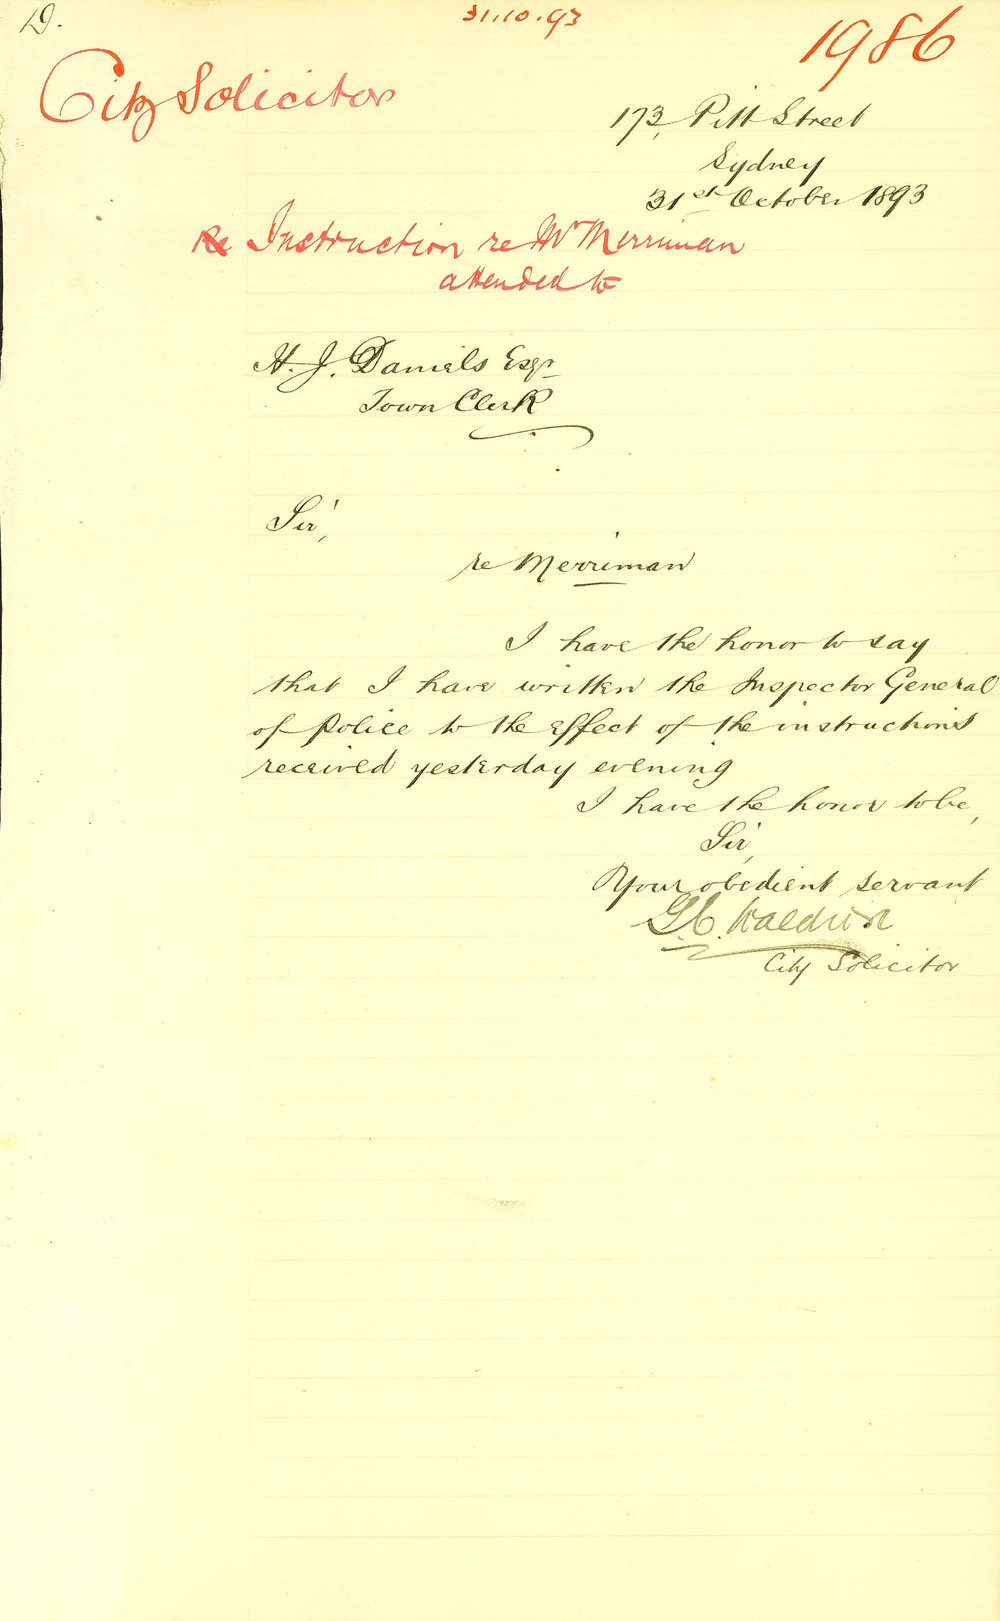 D.
31.10.93
1986
City Solicitor
173, Pitt Street
Sydney
31st October 1893
Re Instruction re Mr Merriman
attended to
H. J. Daniels Esqr
Town Clerk
Sir,
re Merriman
I have the honor to say
that I have written the Inspector General
of Police to the effect of the instructions
received yesterday evening
I have the honor to be,
Sir,
Your obedient servant
G. C. Waldron
City Solicitor